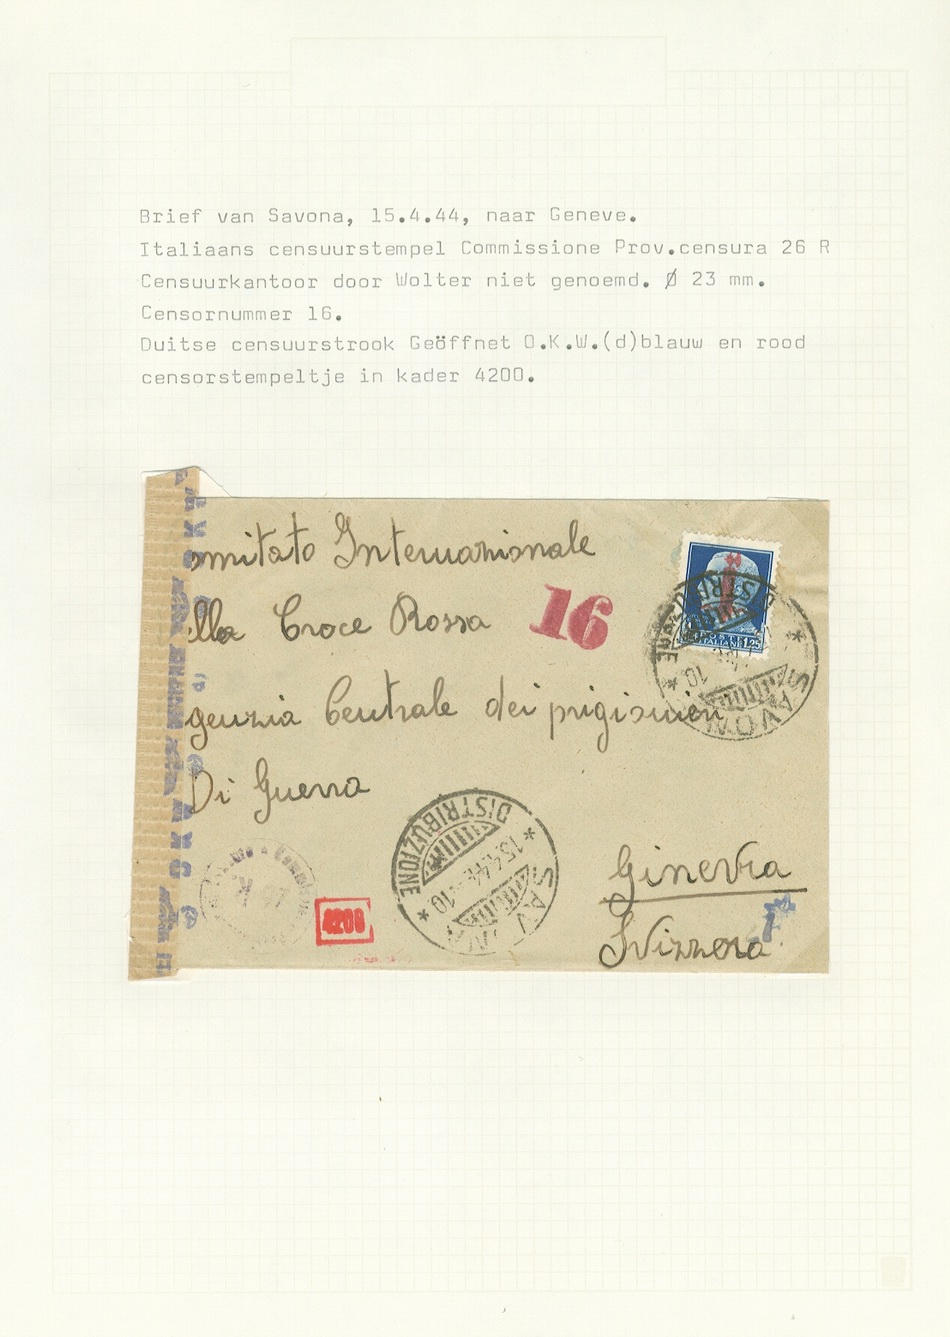 Brief van Savona, 15.4.44, naar Geneve.
Italiaans censuurstempel Commissione Prov.censura 26 R
Censuurkantoor door Wolter niet genoemd. Ø 23 mm.
Censornummer 16.
Duitse censuurstrook Geöffnet O.K.W.(d)blauw en rood
censorstempeltje in kader 4200.
omitato Internazionale
lla Croce Rossa
16
genzia Centrale dei prigionieri
Di Guerra
DISTRIBUZIONE
15.4.44.-10
SAVONA
4200
Ginevra
Svizzera
POSTE
ITALIANE
1,25
SAVONA
10